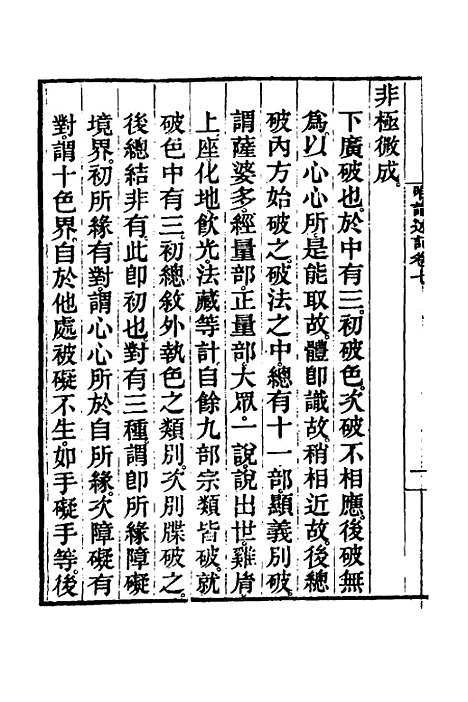 非極微成。
下廣破也。於中有三。初破色。次破不相應。後破無
爲。以心心所。是能取故。體卽識故。稍相近故。後總
破內方始破之。破法之中總有十一部顯義別破。
謂薩婆多。經量部。正量部。大眾。一說。說出世。雞胤。
上座。化地。飲光。法藏等計。自餘九部宗類皆破。就
破色中有三。初總敘外執色之類別。次別牒破之。
後總結非有。此卽初也。對有三種。謂卽所緣障礙
境界。初所緣有對。謂心心所於自所緣。次障礙有
對。謂十色界。自於他處被礙不生。如手礙手等。後
述記卷七
一